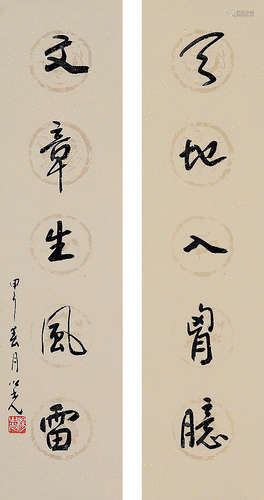 天地入胷臆
文章生風雷
甲子春月